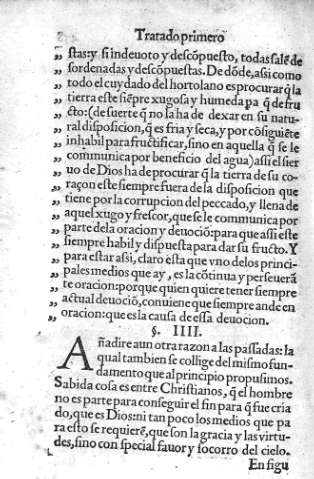 Tratado primero
„ stas: y si indeuoto y descõpuesto, todas salẽ de
„ sordenadas y descõpuestas. De dõde, assi como
„ todo el cuydado del hortolano es procurar q̃ la
„ tierra este siẽpre xugosa y humeda pa q̃ de fru
„ cto: (de suerte q̃ no la ha de dexar en su natu-
„ ral disposicion, q̃ es fria y seca, y por cõsiguiẽte
„ inhabil para fructificar, sino en aquella q̃ se le
„ communica por beneficio del agua) assi el sier
„ uo de Dios ha de procurar q̃ la tierra de su co-
„ raçon este siempre fuera de la disposicion que
„ tiene por la corrupcion del peccado, y llena de
„ aquel xugo y frescor, que se le communica por
„ parte de la oracion y deuoció: para que assi este
„ siempre habil y dispuesta para dar su fructo. Y
„ para estar assi, claro esta que vno de los princi-
„ pales medios que ay, es la cõtinua y perseuerã
„ te oracion: porque quien quiere tener siempre
„ actual deuoció, conuiene que siempre ande en
„ oracion: que es la causa de essa deuocion.
§. IIII.
Añadire aun otra razon a las passadas: la
qual tambien se collige del mismo fun-
damento que al principio propusimos.
Sabida cosa es entre Christianos, q̃ el hombre
no es parte para conseguir el fin para q̃ fue cria
do, que es Dios: ni tan poco los medios que pa
ra esto se requierẽ, que son la gracia y las virtu-
des, sino con special fauor y socorro del cielo.
En figu